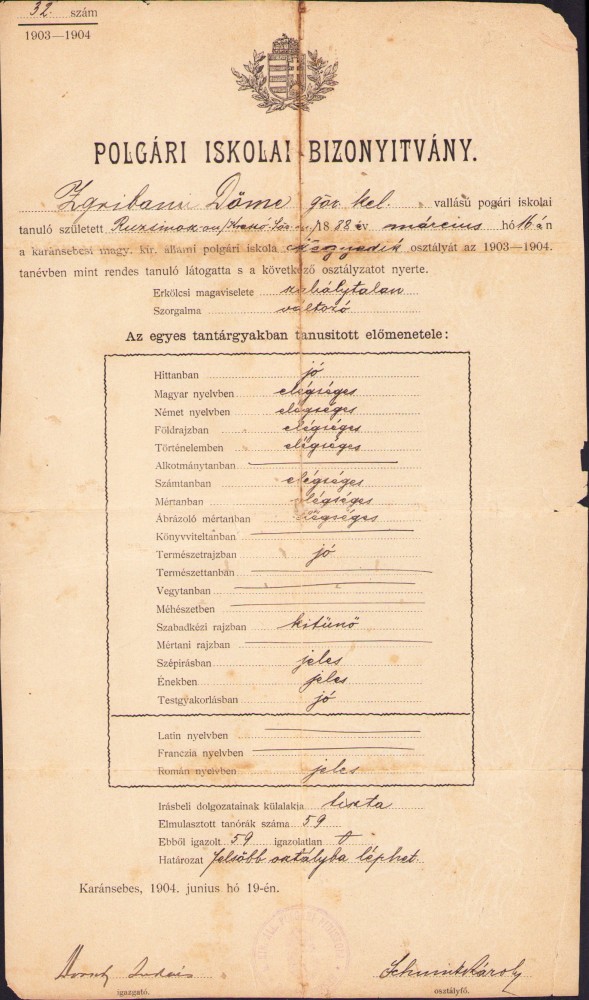 32. szám
1903—1904
POLGÁRI ISKOLAI BIZONYITVÁNY.
Zgribanu Döme gör. kel. vallású pogári iskolai
tanuló született 1888 év március hó 16-án
a karánsebesi magy. kir. állami polgári iskola negyedik osztályát az 1903—1904.
tanévben mint rendes tanuló látogatta s a következő osztályzatot nyerte.
Erkölcsi magaviselete szabálytalan
Szorgalma változó
Az egyes tantárgyakban tanusitott előmenetele:
Hittanban jó
Magyar nyelvben elégséges
Német nyelvben elégséges
Földrajzban elégséges
Történelemben elégséges
Alkotmánytanban
Számtanban elégséges
Mértanban elégséges
Ábrázoló mértanban elégséges
Könyvviteltanban
Természetrajzban jó
Természettanban
Vegytanban
Méhészetben
Szabadkézi rajzban kitünő
Mértani rajzban
Szépirásban jeles
Énekben jeles
Testgyakorlásban jó
Latin nyelvben
Franczia nyelvben
Román nyelvben jeles
Irásbeli dolgozatainak külalakja tiszta
Elmulasztott tanórák száma 59
Ebből igazolt 59 igazolatlan 0
Határozat felsőbb osztályba léphet.
Karánsebes, 1904. junius hó 19-én.
Schmidt Károly
igazgató.
osztályfő.